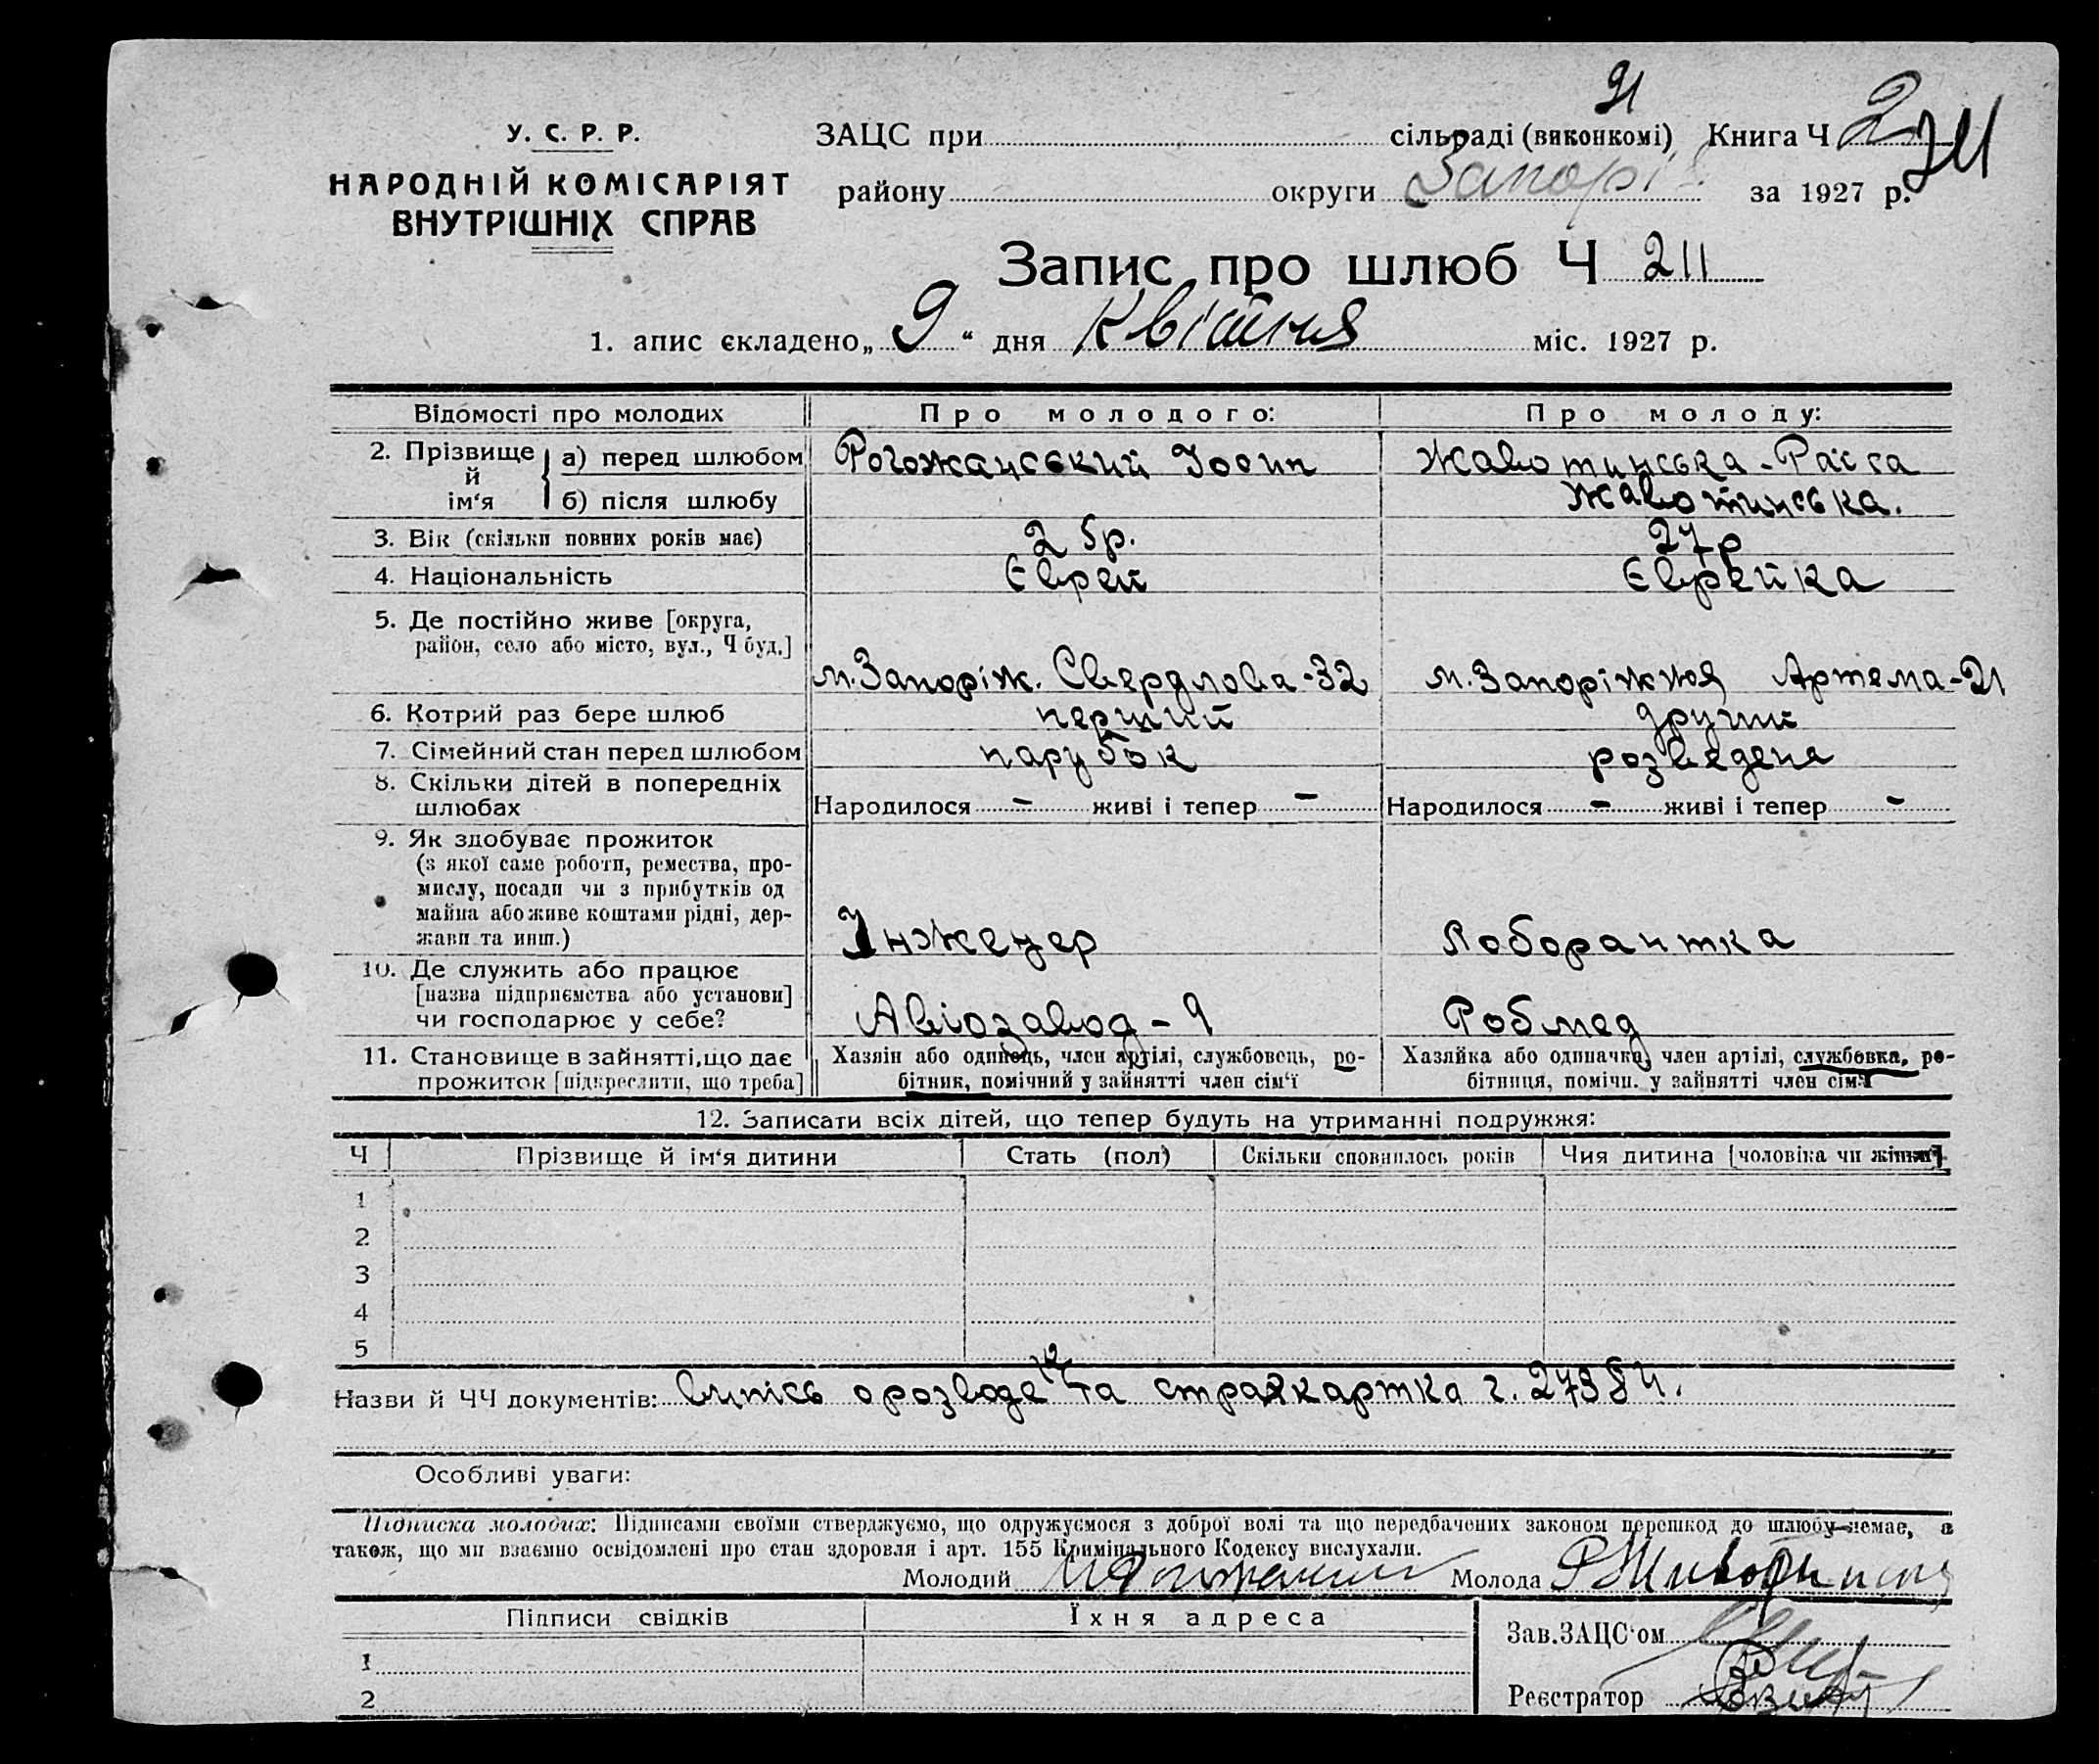 21
У. С. Р. Р.
НАРОДНІЙ КОМІСАРІЯТ
ВНУТРІШНІХ СПРАВ
ЗАЦС при сільраді (виконкомі) Книга Ч 2
району округи Запоріз за 1927 р.
Запис про шлюб Ч 211
1. апис єкладено „ 9 “ дня Квітня міс. 1927 р.
Відомості про молодих Про молодого: Про молоду:
2. Прізвище й ім‘я а) перед шлюбом Рогожанський Іосип Жаботинська - Раїса
б) після шлюбу Жаботинська.
3. Вік (скільки повних років має) 25р. 27р
4. Національність Єврей Єврейка
5. Де постійно живе [округа,
район, село або місто, вул., Ч буд.] м. Запоріж. Свердлова - 32 м. Запоріжжя Артема - 21
6. Котрий раз бере шлюб перший другий
7. Сімейний стан перед шлюбом парубок розведена
8. Скільки дітей в попередніх
шлюбах Народилося - живі і тепер - Народилося - живі і тепер -
9. Як здобуває прожиток
(з якої саме роботи, ремества, про-
мислу, посади чи з прибутків од
майна або живе коштами рідні, дер-
жави та инш.) Інженер Лоборантка
10. Де служить або працює
[назва підприємства або установи]
чи господарює у себе? Авіозавод - 9 Робмед
11. Становище в зайнятті, що дає Хазяін або одинець, член артілі, службовець, ро- Хазяйка або одиначка, член артілі, службовка, ро-
прожиток [підкреслити, що треба] бітник, помічний у зайнятті член сім‘ї бітниця, помічн. у зайнятті член сім‘ї
12. Записати всіх дітей, що тепер будуть на утриманні подружжя:
Ч Прізвище й ім‘я дитини Стать (пол) Скільки сповнилось років Чия дитина [чоловіка чи жінки]
1
2
3
4
5
Назви й ЧЧ документів: Випісь о розводе та страхкартка г. 27384.
Особливі уваги:
Підписка молодих: Підписами своїми стверджуємо, що одружуємося з доброї волі та що передбачених законом перешкод до шлюбу немає, а
також, що ми взаємно освідомлені про стан здоровля і арт. 155 Кримінального Кодексу вислухали.
Молодий Молода
Підписи свідків Їхня адреса Зав. ЗАЦС‘ом
1
2 Реєстратор